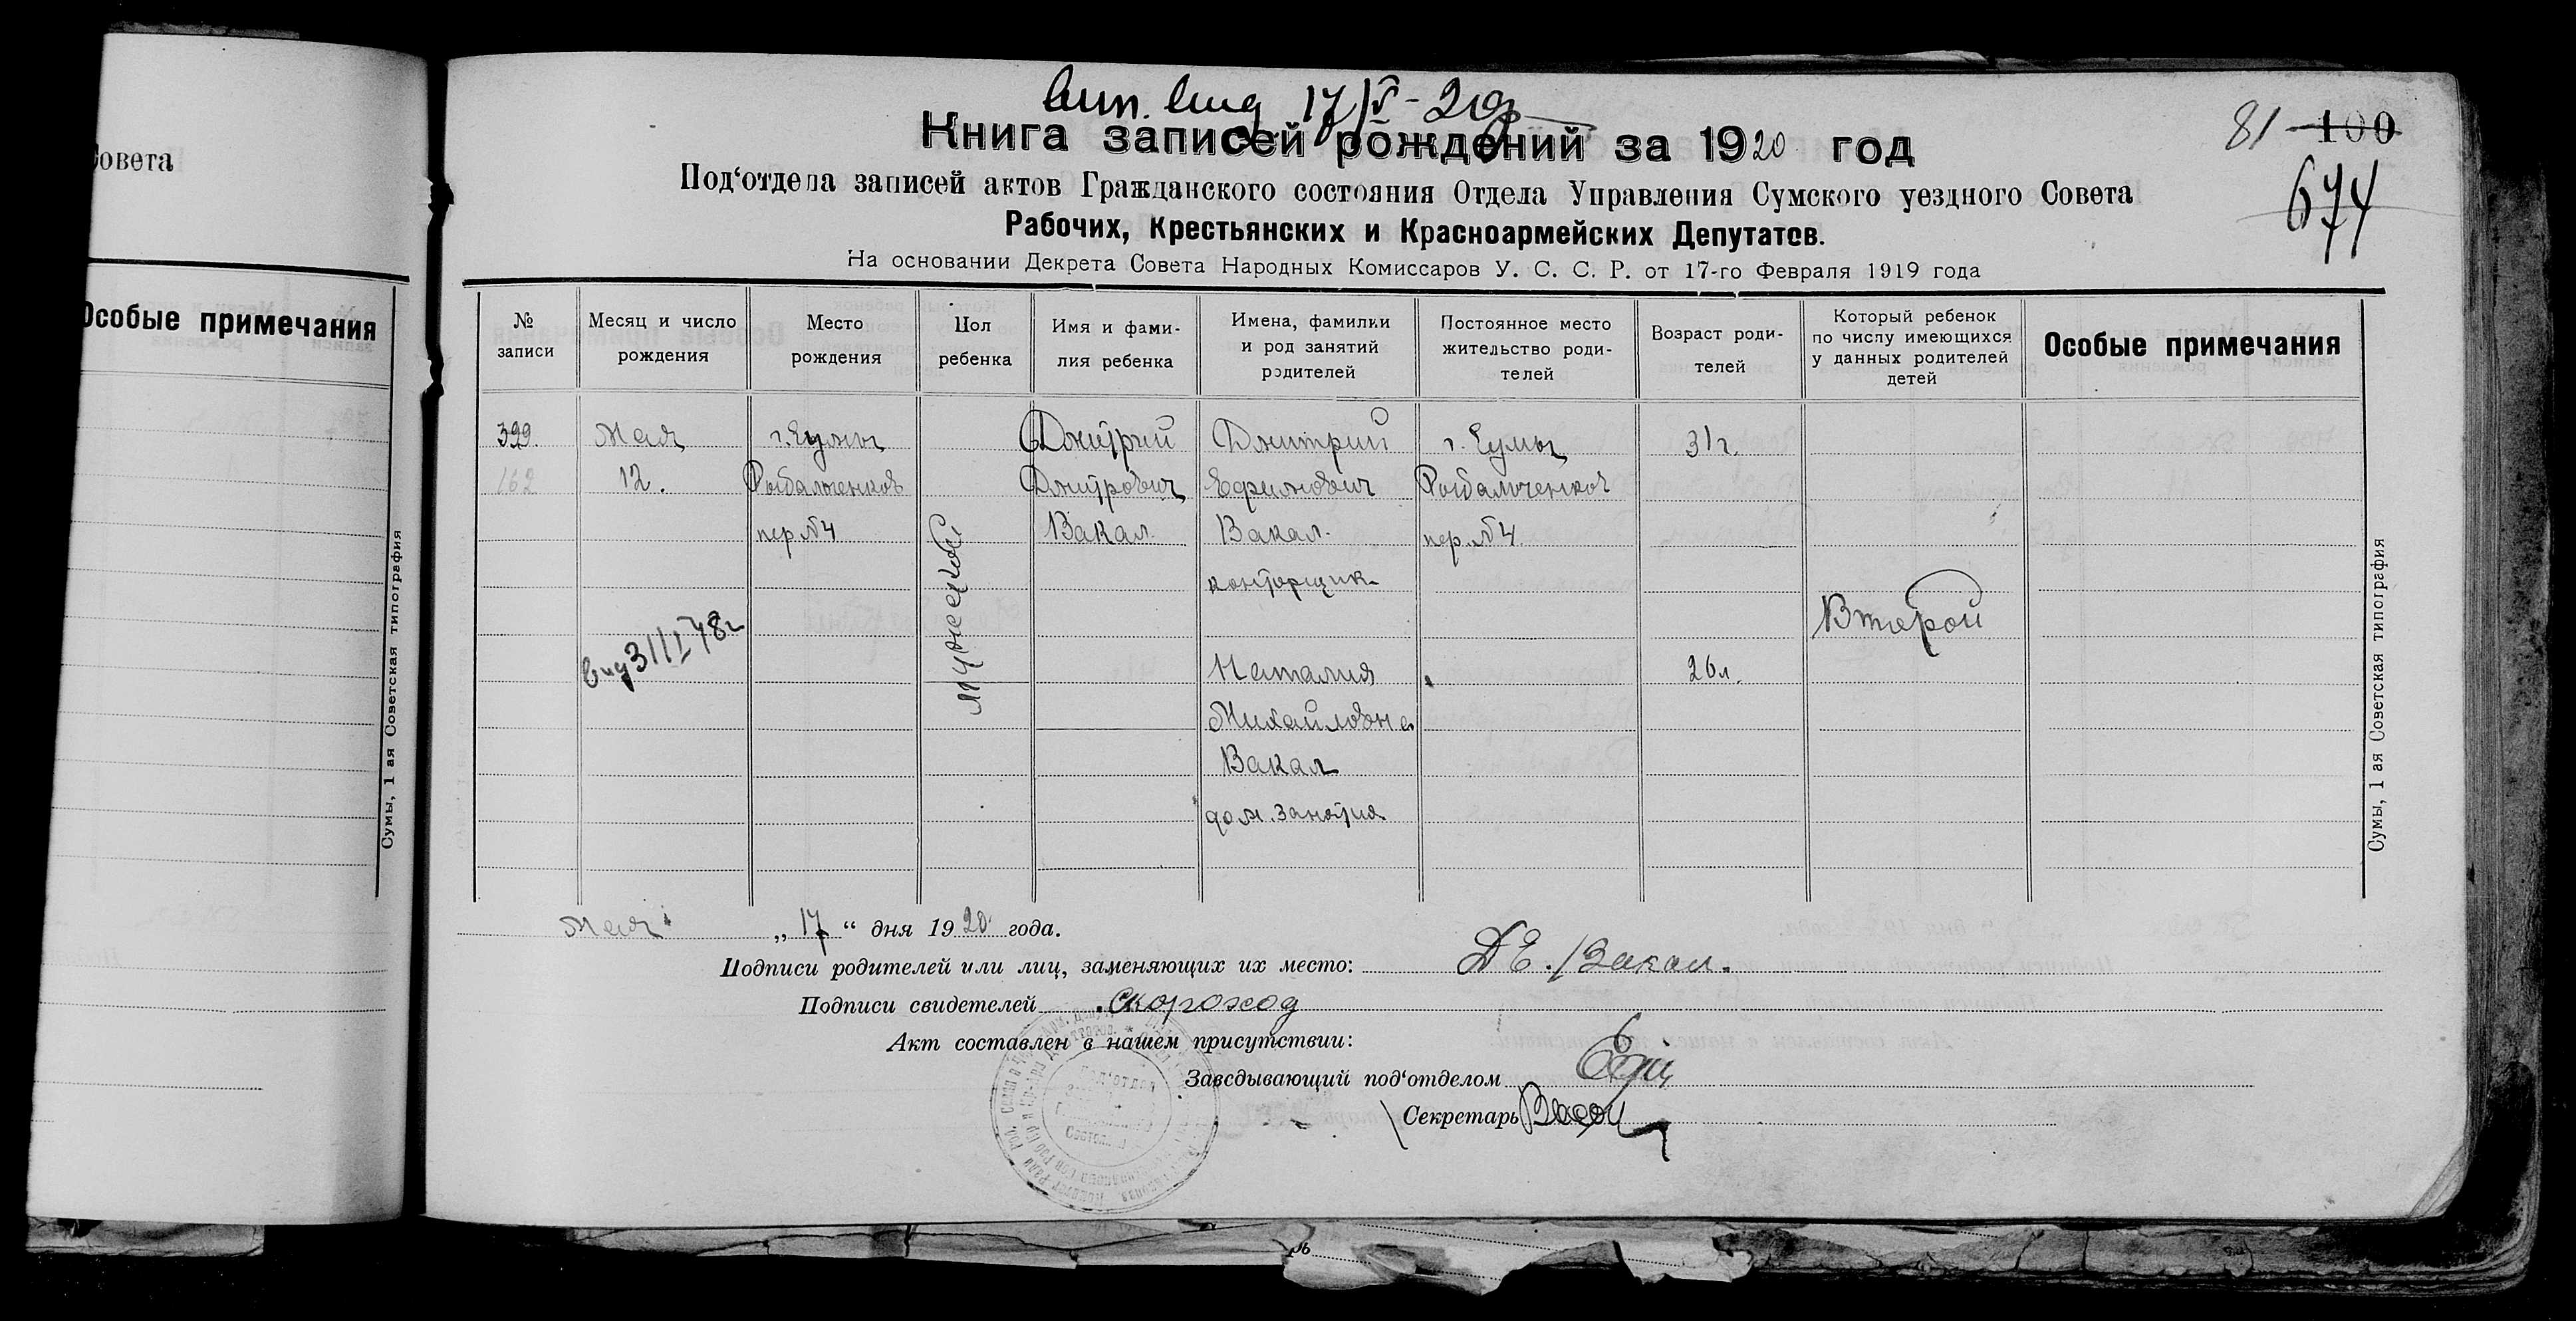 Совета
Особые примечания
Сумы, 1 ая Советская типография
вып. вид 17/V-20г
Книга записей рождений за 1920 год
81 100
674
Под‘отдела записей актов Гражданского состояния Отдела Управления Сумского уездного Совета
Рабочих, Крестьянских и Красноармейских Депутатов.
На основании Декрета Совета Народных Комиссаров У. С. С. Р. от 17-го Февраля 1919 года
№ записи
Месяц и число рождения
Место рождения
Пол ребенка
Имя и фами-
лия ребенка
Имена, фамилии
и род занятий
родителей
Постоянное место
жительство роди-
телей
Возраст роди-
телей
Который ребенок
по числу имеющихся
у данных родителей
детей
Особые примечания
399. Мая г. Сумы Дмитрий Дмитрий г. Сумы 31 г.
162 12. Рыбальченков Дмитрович Ефимович Рыбальченков
пер. №4 Вакал Вакал. пер. №4
мужеской
конторщик
Второй
вид 31/I 48г
Наталия 26 л.
Михайловна
Вакал
дом. занятия
Мая „17“ дня 1920 года.
Подписи родителей или лиц, заменяющих их место: Д Е. Вакал.
Подписи свидетелей Скороход
Акт составлен в нашем присутствии:
Заведывающий под‘отделом
Секретарь
Сумы, 1 ая Советская типография